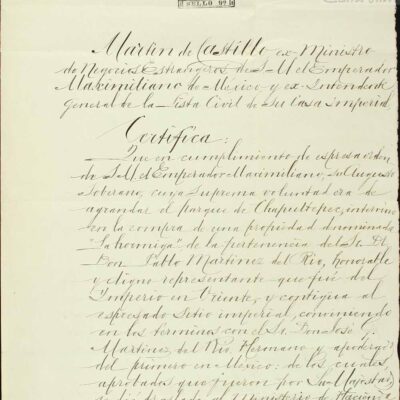 SELLO 9º
Martin de Castillo ex-Ministro
de Negocios Estrangeros de S M el Emperador
Maximiliano de Mexico y ex-Intendente
general de la Lista Civil de Su Casa Imperial
Certifica:
Que en cumplimiento de espresa orden
de S.M. el Emperador Maximiliano, Su Augusto
Soberano, cuya Suprema voluntad era de
agrandar el parque de Chapultepec, intervino
en la compra de una propiedad denominada
"La hormiga" de la pertenencia del Sr. Dr.
Don Pablo Martinez del Rio, honorable
y digno representante que fué del
Imperio en Oriente, y contigua al
espresado Sitio imperial, conviniendo
en los términos con el Sr. Don José G.
Martinez del Rio, Hermano y apoderado
del primero en Mexico: de los cuales,
aprobados que fueron por Su Majestad
al Ministerio de Hacienda